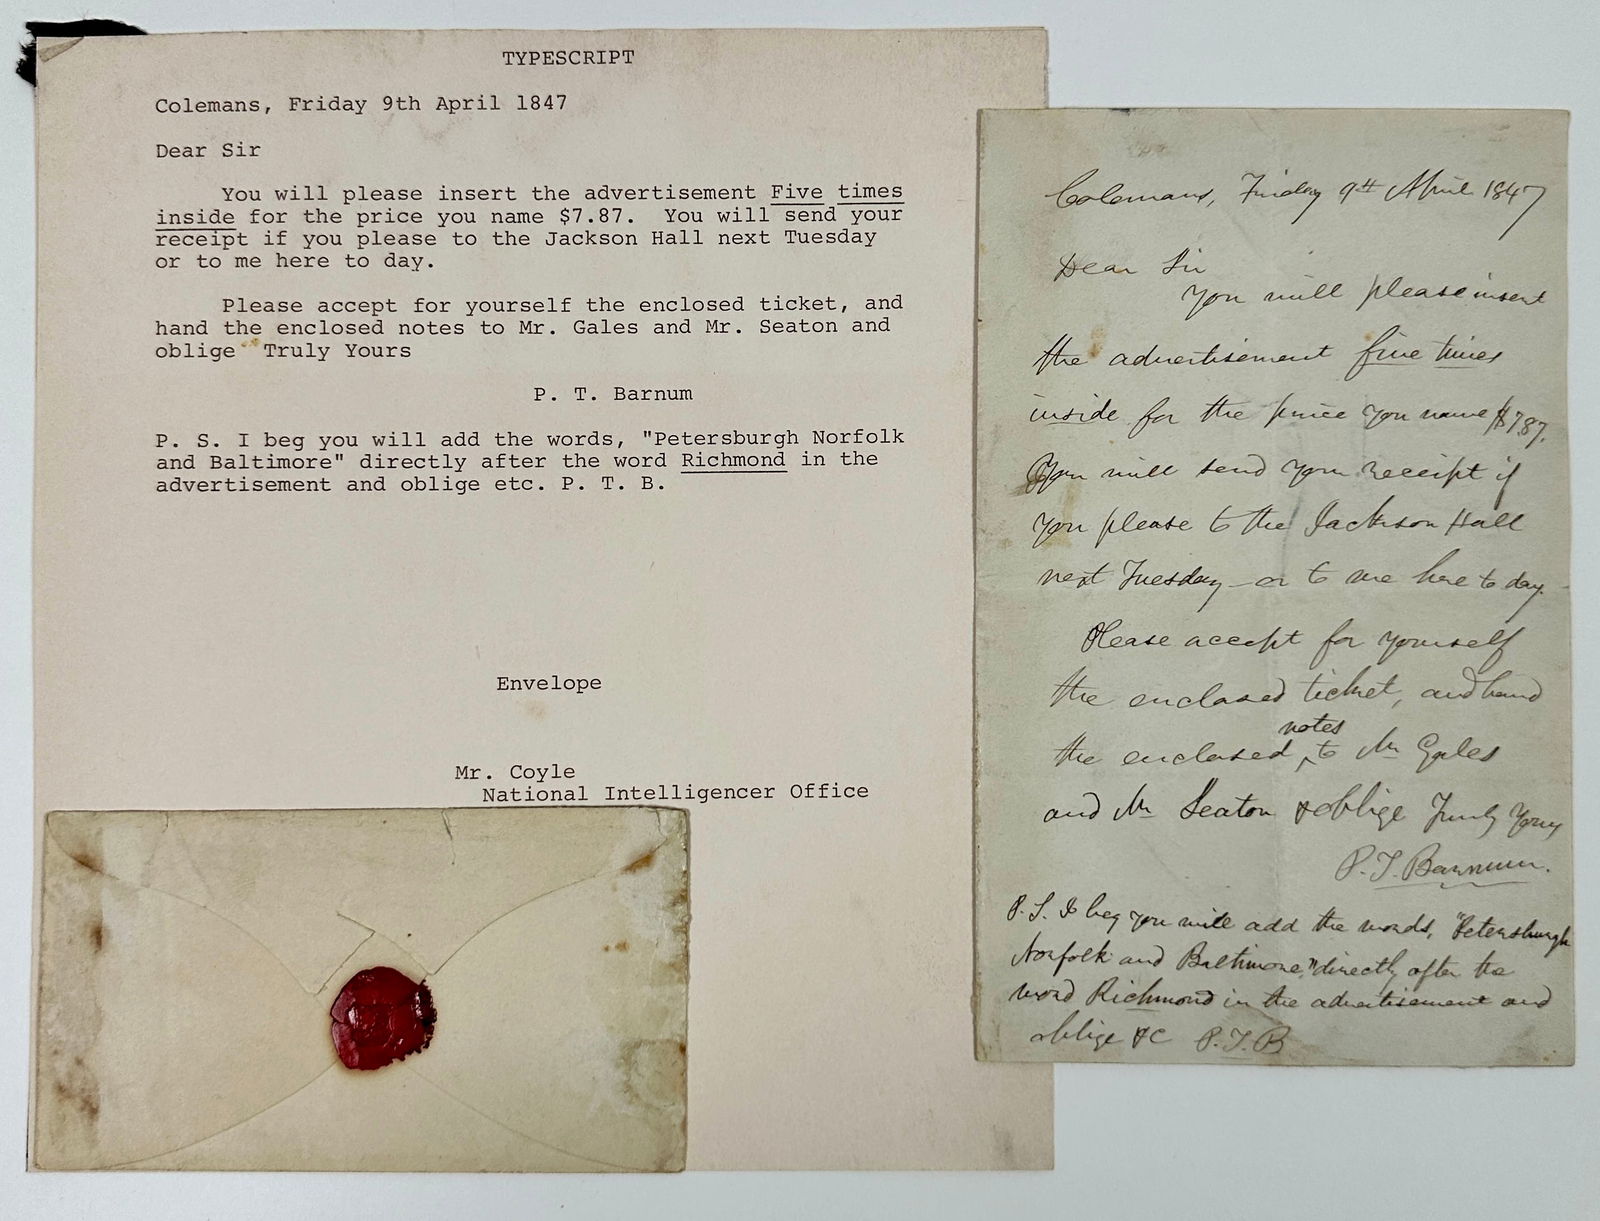 TYPESCRIPT
Colemans, Friday 9th April 1847
Dear Sir
You will please insert the advertisement Five times
inside for the price you name $7.87. You will send your
receipt if you please to the Jackson Hall next Tuesday
or to me here to day.
Please accept for yourself the enclosed ticket, and
hand the enclosed notes to Mr. Gales and Mr. Seaton and
oblige Truly Yours
P. T. Barnum
P. S. I beg you will add the words, "Petersburgh Norfolk
and Baltimore" directly after the word Richmond in the
advertisement and oblige etc. P. T. B.
Envelope
Mr. Coyle
National Intelligencer Office
Colemans, Friday 9th April 1847
Dear Sir
You will please insert
the advertisement five times
inside for the price you name $7.87.
You will send your receipt if
you please to the Jackson Hall
next Tuesday - or to me here to day.
Please accept for yourself
the enclosed ticket, and hand
notes
the enclosed ‸ to Mr Gales
and Mr Seaton & oblige Truly Yours
P. T. Barnum.
P. S. I beg you will add the words, "Petersburgh
Norfolk and Baltimore," directly after the
word Richmond in the advertisement and
oblige &c P. T. B